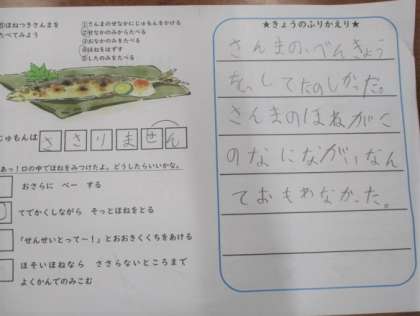 ほねつきさんまを
たべてみよう
①さんまのせなかにじゅもんをかける
②せなかのみからたべる
③おなかのみをたべる
④ほねをはずす
⑤したのみをたべる
じゅもんは
ささりません
あっ！口の中でほねをみつけたよ。どうしたらいいかな。
おさらに　べー　する
てでかくしながら　そっとほねをとる
「せんせいとって～！」とおおきくくちをあける
ほそいほねなら　ささらないところまで
よくかんでのみこむ
★きょうのふりかえり★
さんまの、べんきょう
をしてたのしかった。
さんまのほねがこ
のなにながいなん
ておもわなかった。